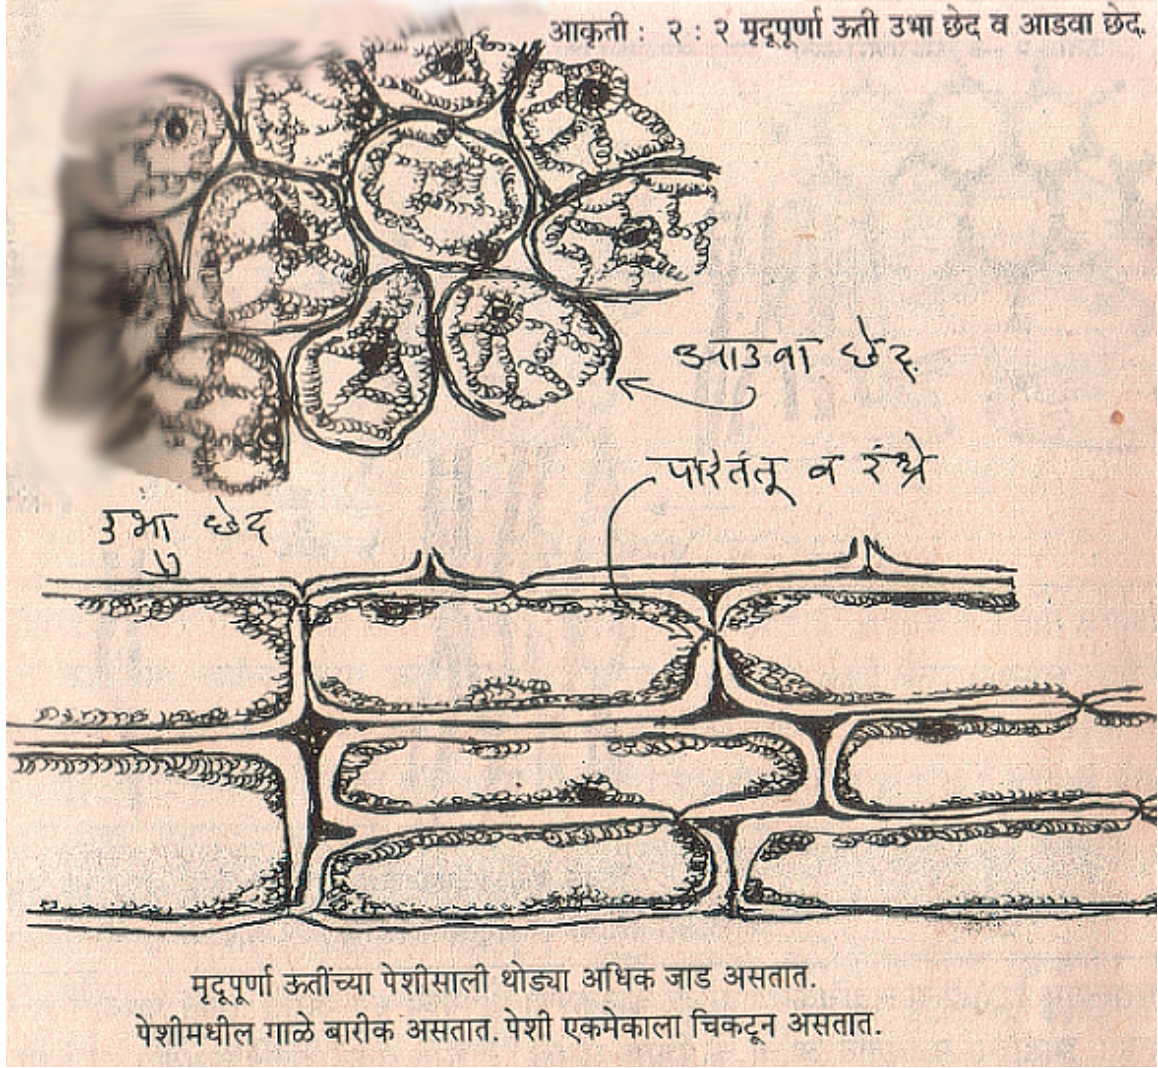 आकृती : २ : २ मृदूपूर्णा ऊती उभा छेद व आडवा छेद.
आडवा छेद
पारतंतू व रंध्रे
उभा छेद
मृदूपूर्णा ऊतींच्या पेशीसाली थोड्या अधिक जाड असतात.
पेशीमधील गाळे बारीक असतात. पेशी एकमेकाला चिकटून असतात.